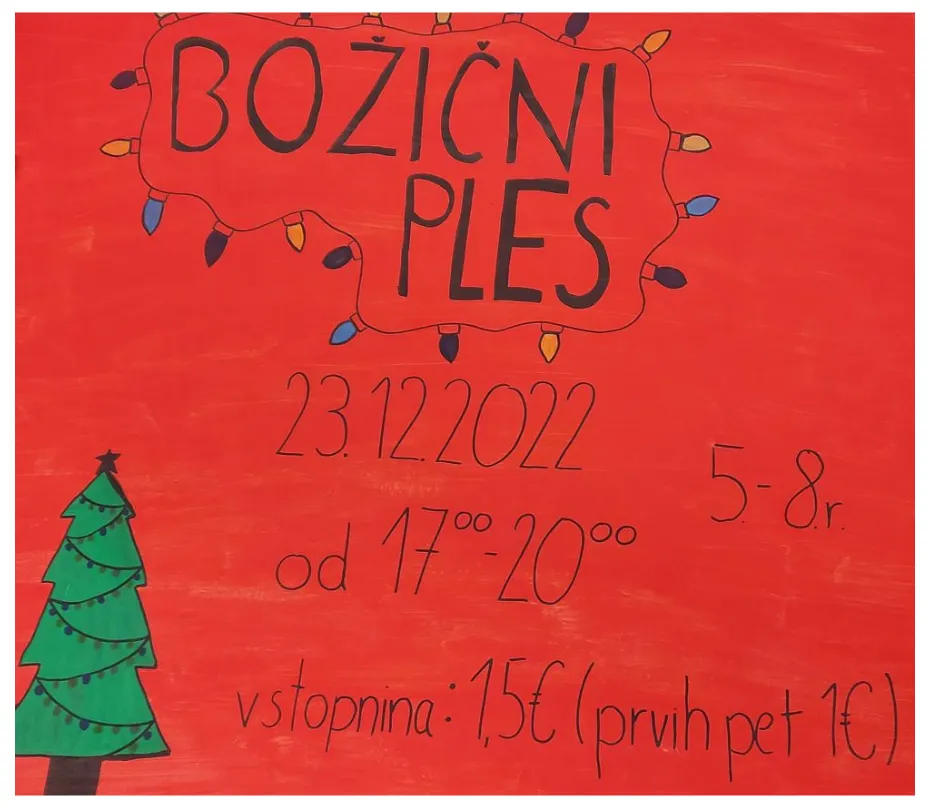 BOŽIČNI
PLES
23.12.2022
5.-8.r.
od 17⁰⁰-20⁰⁰
vstopnina: 1,5€ (prvih pet 1€)